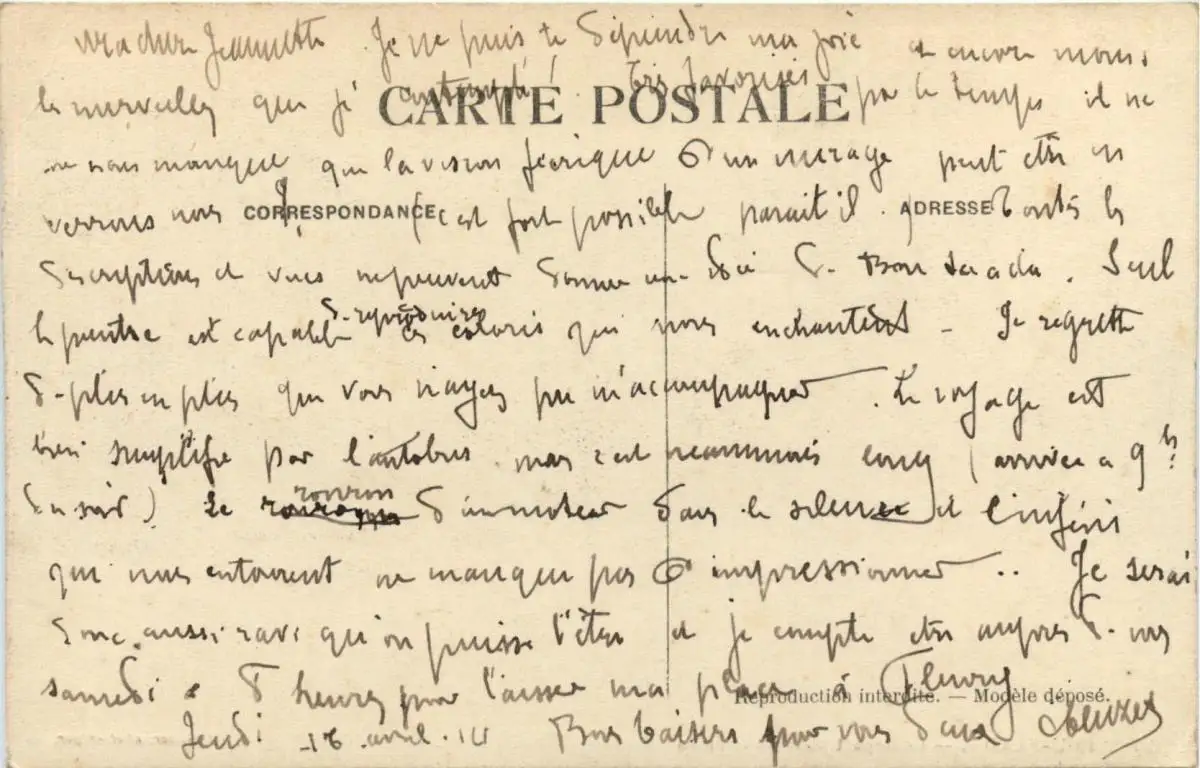 Ma chère Jeannette Je ne puis te dépeindre ma joie et encore moins
les merveilles que j'ai contemplé. Très favorisés par le temps il ne
CARTE POSTALE
ne nous manque que la vision féerique d'un mirage peut etre en
verrons nous c'est fort possible parait il. toutes les
CORRESPONDANCE
ADRESSE
descriptions et vues ne peuvent donner une idée de Bou Saada. Seul
le peintre est capable de reproduire ces coloris qui nous enchantent - Je regrette
de plus en plus que vous n'ayez pu m'accompagner. Le voyage est
bien simplifié par l'autobus mais c'est neanmoins long (arrivée a 9 hs
du soir) Le ronron d'un moteur dans le silence et l'infini
qui nous entourent ne manque pas d'impressionner .. Je serai
donc aussi ravi qu'on puisse l'être et je compte etre aupres de vous
samedi a heures pour laisser ma place à Fleury
Reproduction interdite. — Modèle déposé.
Jeudi 16 avril 14 Bons baisers pour vous deux